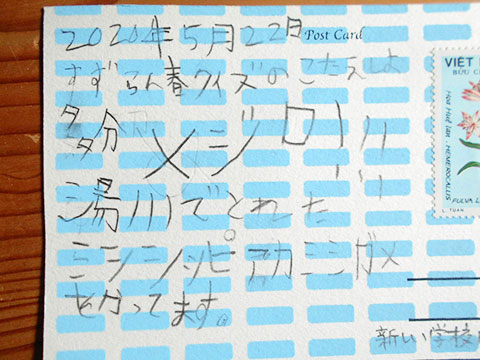 2020年5月22日 Post Card
すずらん春クイズのこたえは
多分 メジロ!!
湯川でとれた
ミシシッピアカミミガメ
をかってます。
新しい学校
VIỆT
BƯU
HEMEROCALLIS
FULVA